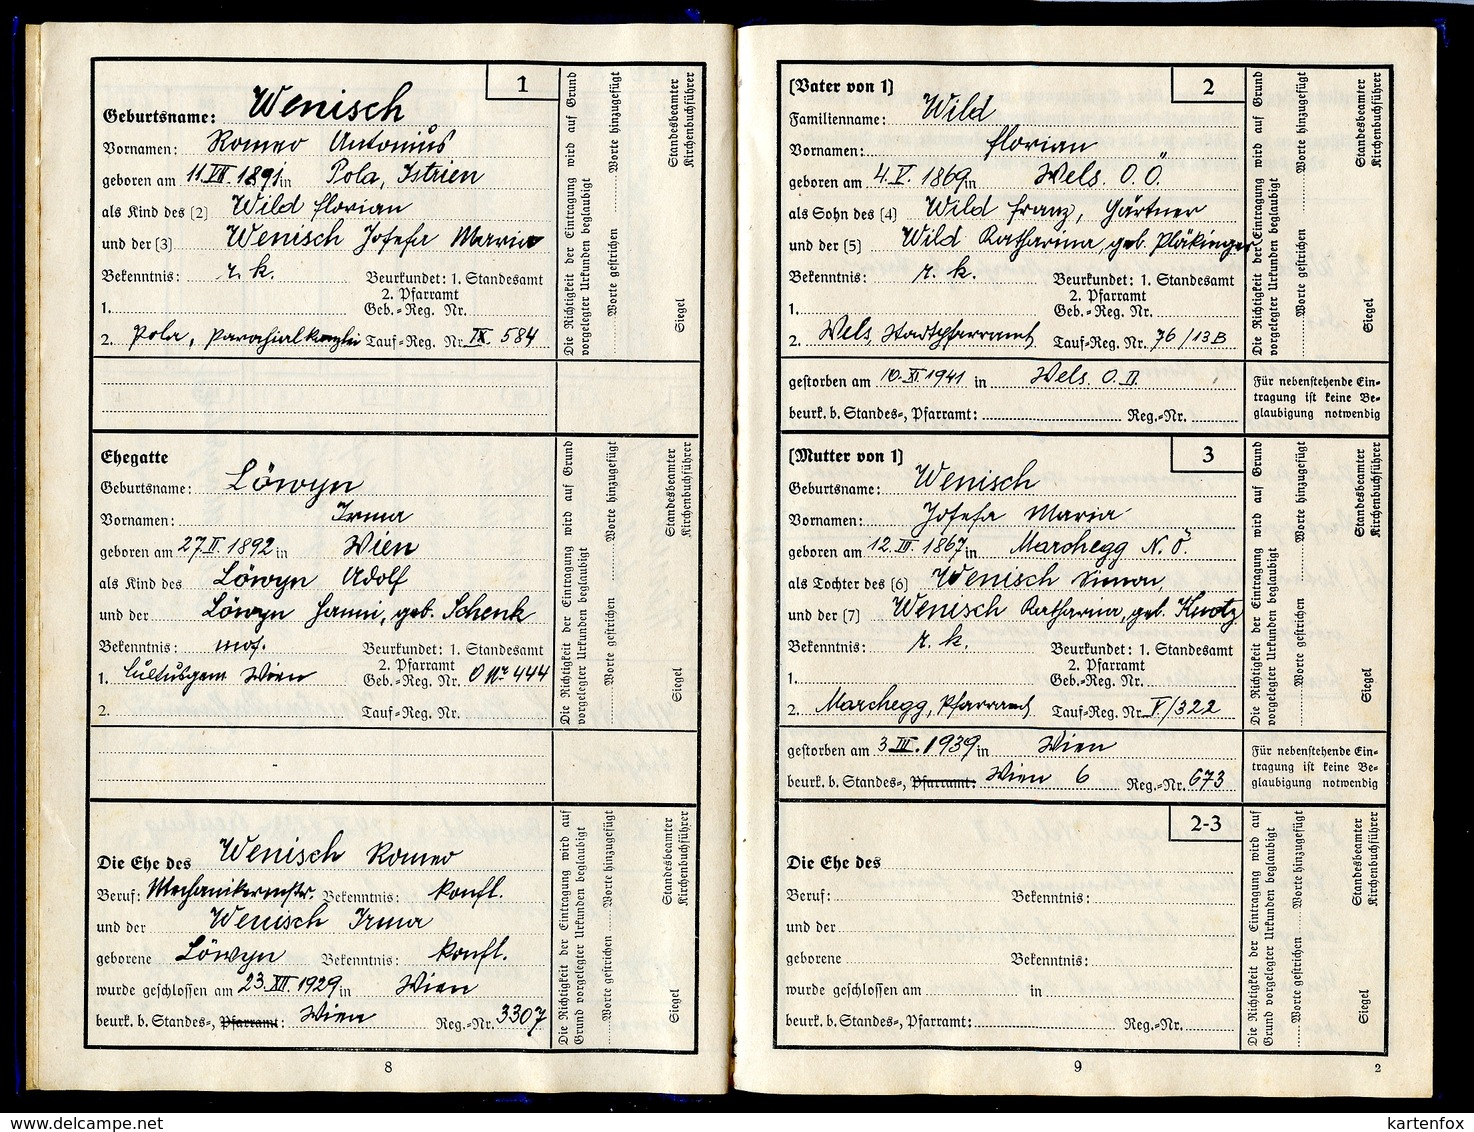 1
Geburtsname: Wenisch
Vornamen: Romeo Antonius
geboren am 11.VII.1891 in Pola, Istrien
als Kind des (2) Wild Florian
und der (3) Wenisch Josefa Maria
Bekenntnis: r. k. Beurkundet: 1. Standesamt
2. Pfarramt
1. Geb.=Reg. Nr.
2. Pola, Parochialkanzlei Tauf=Reg. Nr. IX. 584
Die Richtigkeit der Eintragung wird auf Grund
vorgelegter Urkunden beglaubigt
Worte gestrichen Worte hinzugefügt
Siegel
Standesbeamter
Kirchenbuchführer
Ehegatte
Geburtsname: Löwyn
Vornamen: Irma
geboren am 27.II.1892 in Wien
als Kind des Löwyn Adolf
und der Löwyn Hanni, geb. Schenk
Bekenntnis: mos. Beurkundet: 1. Standesamt
2. Pfarramt
1. Cultusgem Wien Geb.=Reg. Nr. O Nr 444
2. Tauf=Reg. Nr.
Die Richtigkeit der Eintragung wird auf Grund
vorgelegter Urkunden beglaubigt
Worte gestrichen Worte hinzugefügt
Siegel
Standesbeamter
Kirchenbuchführer
Die Ehe des Wenisch Romeo
Beruf: Mechanikermstr. Bekenntnis: konfl.
und der Wenisch Irma
geborene Löwyn Bekenntnis: konfl.
wurde geschlossen am 23.XII.1929 in Wien
beurk. b. Standes=, Pfarramt: Wien Reg.=Nr. 3307
Die Richtigkeit der Eintragung wird auf
Grund vorgelegter Urkunden beglaubigt
Worte gestrichen Worte hinzugefügt
Siegel
Standesbeamter
Kirchenbuchführer
8
(Vater von 1) 2
Familienname: Wild
Vornamen: Florian
geboren am 4.V.1869 in Wels. O.Ö.
als Sohn des (4) Wild Franz, Gärtner
und der (5) Wild Katharina, geb. Pläkinger
Bekenntnis: r. k. Beurkundet: 1. Standesamt
2. Pfarramt
1. Geb.=Reg. Nr.
2. Wels, Stadtpfarramt Tauf=Reg. Nr. 76/13B
Die Richtigkeit der Eintragung wird auf Grund
vorgelegter Urkunden beglaubigt
Worte gestrichen Worte hinzugefügt
Siegel
Standesbeamter
Kirchenbuchführer
gestorben am 10.XI.1941 in Wels. O.D.
beurk. b. Standes=, Pfarramt: Reg.=Nr.
Für nebenstehende Ein=
tragung ist keine Be=
glaubigung notwendig
(Mutter von 1) 3
Geburtsname: Wenisch
Vornamen: Josefa Maria
geboren am 12.III.1867 in Marchegg N.Ö.
als Tochter des (6) Wenisch Simon,
und der (7) Wenisch Katharina, geb. Knotz
Bekenntnis: r. k. Beurkundet: 1. Standesamt
2. Pfarramt
1. Geb.=Reg. Nr.
2. Marchegg, Pfarramt Tauf=Reg. Nr. V/322
Die Richtigkeit der Eintragung wird auf Grund
vorgelegter Urkunden beglaubigt
Worte gestrichen Worte hinzugefügt
Siegel
Standesbeamter
Kirchenbuchführer
gestorben am 3.III.1939 in Wien
beurk. b. Standes=, Pfarramt: Wien 6 Reg.=Nr. 673
Für nebenstehende Ein=
tragung ist keine Be=
glaubigung notwendig
2-3
Die Ehe des
Beruf: Bekenntnis:
und der
geborene Bekenntnis:
wurde geschlossen am in
beurk. b. Standes=, Pfarramt: Reg.=Nr.
Die Richtigkeit der Eintragung wird auf
Grund vorgelegter Urkunden beglaubigt
Worte gestrichen Worte hinzugefügt
Siegel
Standesbeamter
Kirchenbuchführer
9
2
www.delcampe.net
kartenfox